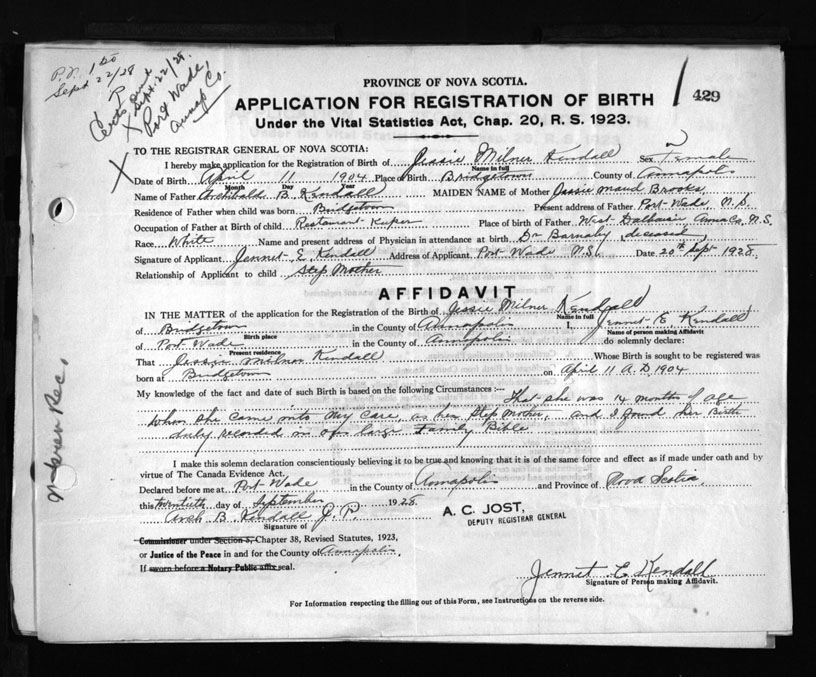 P.N. 1 50
Sept 22/28
Sept. 22/28.
Port Wade,
Annap Co.
PROVINCE OF NOVA SCOTIA.
APPLICATION FOR REGISTRATION OF BIRTH
Under the Vital Statistics Act, Chap. 20, R. S. 1923.
429
TO THE REGISTRAR GENERAL OF NOVA SCOTIA:
I hereby make application for the Registration of Birth of Jessie Milner Kendall Sex Female
Name in full
Date of Birth April 11 1904 Place of Birth Bridgetown County of Annapolis
Month Day Year
Name of Father Archibald B. Kendall MAIDEN NAME of Mother Jessie Maud Brooks
Residence of Father when child was born Bridgetown Present address of Father Port Wade, N.S.
Occupation of Father at Birth of child Restaurant Kuper Place of birth of Father West Dalhousie Anna Co. N.S.
Race White Name and present address of Physician in attendance at birth Dr Barnaby deceased
Signature of Applicant Jennet E. Kendall Address of Applicant Port Wade N.S. Date 20th Sept 1928.
Relationship of Applicant to child Step Mother
AFFIDAVIT
IN THE MATTER of the application for the Registration of the Birth of Jessie Milner Kendall
Name in full
of Bridgetown in the County of Annapolis I, Jennet E. Kendall
Birth place Name of person making Affidavit
of Port Wade in the County of Annapolis do solemnly declare:
Present residence
That Jessie Milner Kendall Whose Birth is sought to be registered was
born at Bridgetown on April 11 A.D. 1904
My knowledge of the fact and date of such Birth is based on the following Circumstances :— That she was 14 months of age
when she came into my care, as her Step Mother, and I found her Birth
duly recorded in our large Family Bible
I make this solemn declaration conscientiously believing it to be true and knowing that it is of the same force and effect as if made under oath and by
virtue of The Canada Evidence Act.
Declared before me at Port Wade in the County of Annapolis and Province of Nova Scotia
this twentieth day of September 1928.
Arch B. Kendall J. P.
Signature of
A. C. JOST,
DEPUTY REGISTRAR GENERAL
Commissioner under Section 3, Chapter 38, Revised Statutes, 1923,
or Justice of the Peace in and for the County of Annapolis.
If sworn before a Notary Public affix seal.
Jennet E Kendall
Signature of Person making Affidavit.
For Information respecting the filling out of this Form, see Instructions on the reverse side.
Rec.